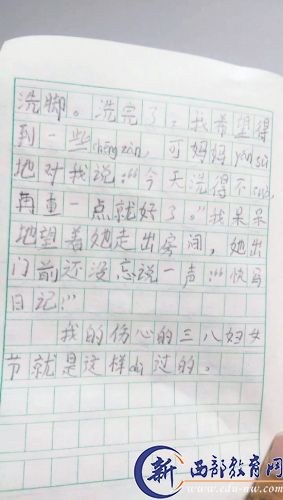 洗脚。洗完了,我希望得
到一些chēng zàn,可妈妈yán sù
地对我说:"今天洗得不cuò,
再重一点就好了。"我呆呆
地望着她走出房间,她出
门前还没忘说一声:"快写
日记!"
我的伤心的三八妇女
节就是这样dù过的。
新 西部教育网
www.edu-nw.com